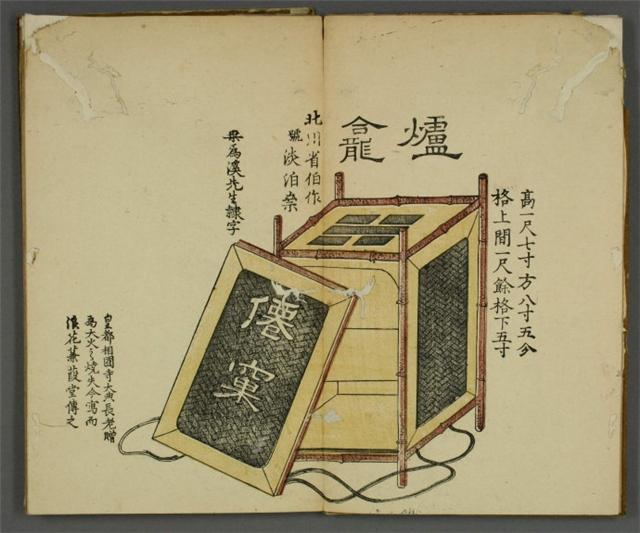 爐龕
高一尺七寸方八寸五分
格上間一尺餘格下五寸
北川省伯作
號淡泊
梁為溪先生隷字
僊窠
皇都相國寺大典長老贈
為大火之燒失今寫而
浪花蒹葭堂傳之